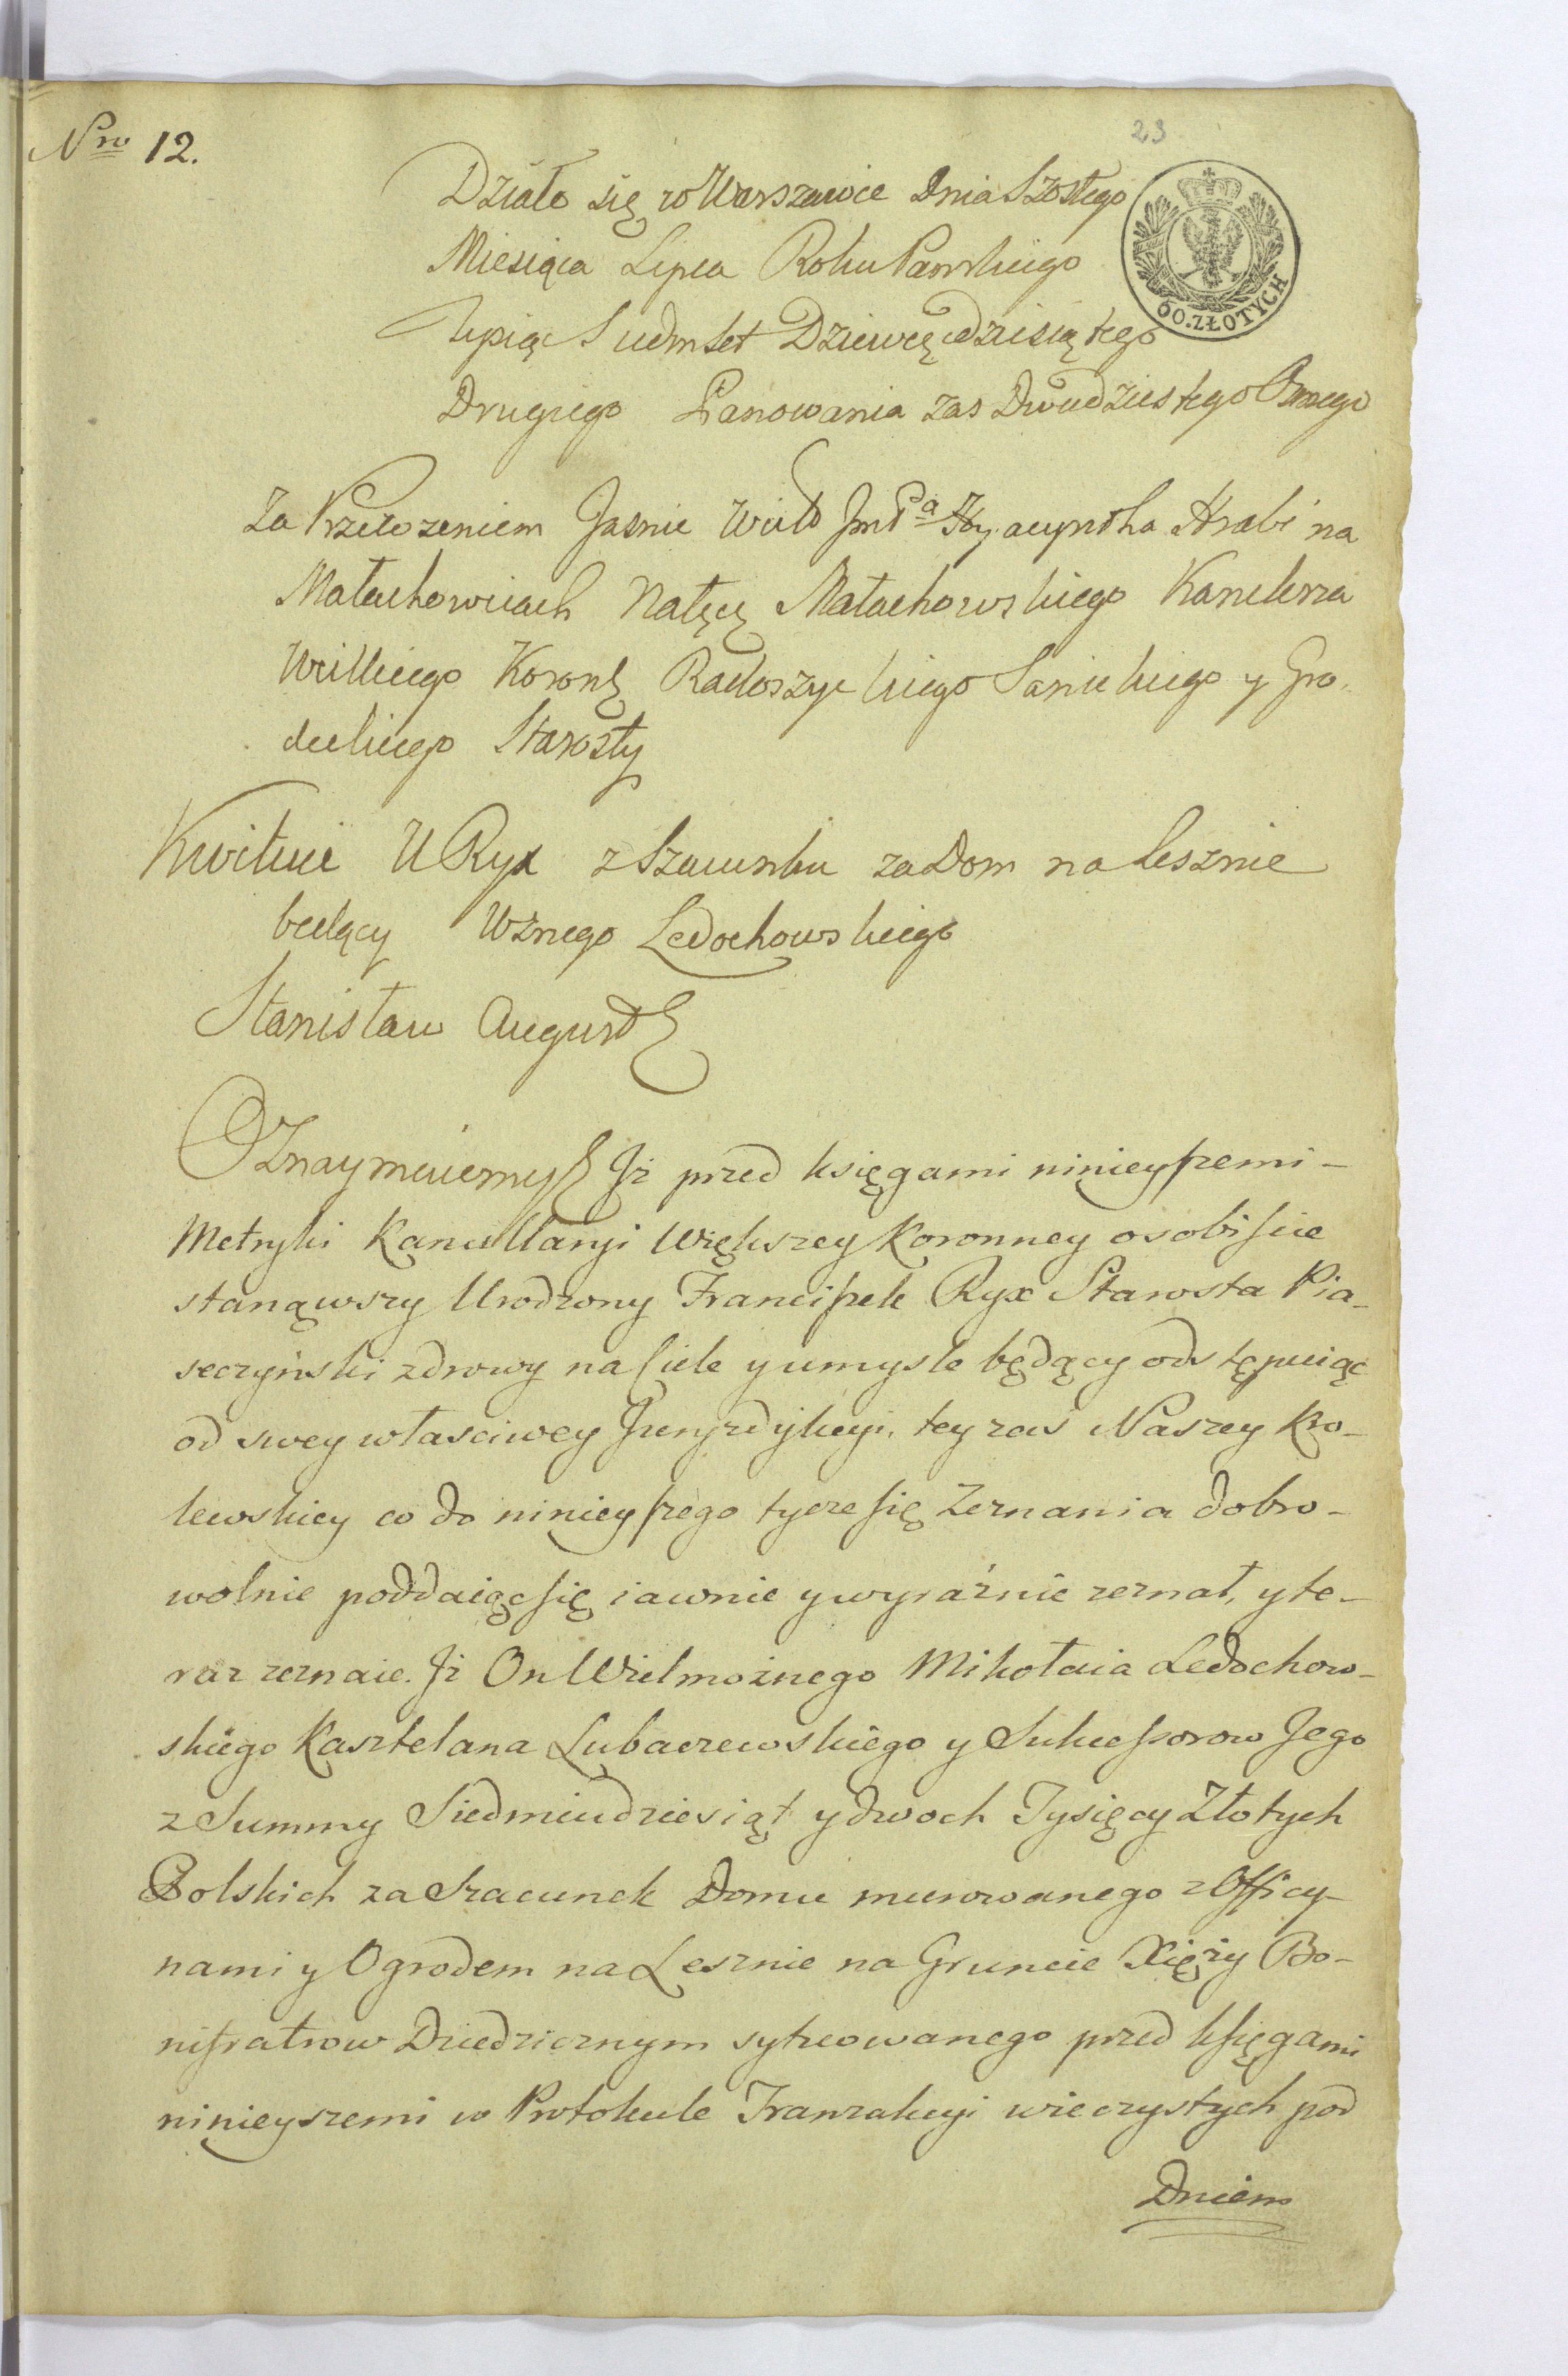 Nro 12.
23
60. ZŁOTYCH
Działo się w Warszawie Dnia Szostego
Miesiąca Lipca Roku Pańskiego
Tysiąc Siedmset Dziewięcdzisiątego
Drugiego Panowania zas Dwudziestego Osmego
Za Przełozeniem Jasnie Wiel Jmć Pa Hyacyntha Hrabi na
Małachowicach Nałęcz Małachowskiego Kanclerza
Wielkiego Koron Radoszyckiego Sanickiego y Gro-
deckiego Starosty
Kwituie U Ryx z Szacunku za Dom na Lesznie
będący Wznego Ledochowskiego
Stanisław August
Oznaymuiemy Jż przed księgami ninieyszemi -
Metryki Kancellaryi Większey Koronney osobiscie
stanąwszy Urodzony Franciszek Ryx Starosta Pia-
seczyński zdrowy na Ciele y umysle będący odstępuiąc
od swey własciwey Juryzdykcyi, tey zaś Naszey Kro-
lewskiey co do ninieyszego tycze się Zeznania dobro-
wolnie poddaiąc się iawnie y wyraźnie zeznał, y te-
raz zeznaie. Jż On Wielmożnego Mikołaia Ledochow-
skiego Kasztelana Lubaczewskiego y Sukcessorow Jego
z Summy Siedmiudziesiąt y dwoch Tysięcy Złotych
Polskich za Szacunek Domu murowanego z Officy-
nami y Ogrodem na Lesznie na Gruncie Xięży Bo-
nifratrow Dziedzicznym sytuowanego przed Księgami
ninieyszemi w Protokule Tranzakcyi wieczystych pod
Dniem